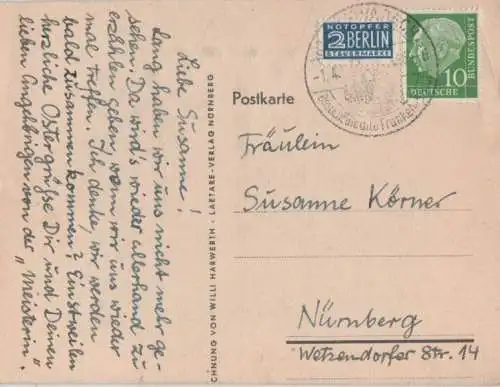 Liebe Susanne!
Lang haben wir uns nicht mehr ge-
sehen. Da wird's wieder allerhand zu
erzählen geben, wenn wir uns wieder
mal treffen. Ich denke, wir werden
bald zusammenkommen? Einstweilen
herzliche Ostergrüße Dir und Deinen
lieben Angehörigen von der „Meisterin."
ZEICHNUNG VON WILLI HARWERTH · LAETARE-VERLAG NÜRNBERG
Postkarte
NOTOPFER
2 BERLIN
STEUERMARKE
10
DEUTSCHE
BUNDESPOST
Fräulein
Susanne Körner
Nürnberg
Wetzendorfer Str. 14